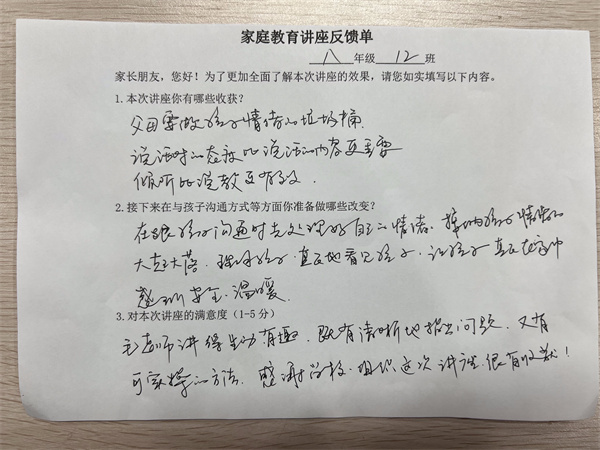 家庭教育讲座反馈单
八年级 12 班
家长朋友，您好！为了更加全面了解本次讲座的效果，请您如实填写以下内容。
1.本次讲座你有哪些收获？
父母要做孩子情绪的垃圾桶
说话时的态度比说话的内容更重要
倾听比说教更有效.
2.接下来在与孩子沟通方式等方面你准备做哪些改变？
在跟孩子沟通时先处理好自己的情绪、接纳孩子情绪的
大起大落.理解孩子.真正地看见孩子.让孩子真正在家中
感到安全.温暖.
3.对本次讲座的满意度（1-5 分）
老师讲得生动有趣，既有清晰地指出问题，又有
可实操的方法.感谢学校.组织这次讲座.很有收获！